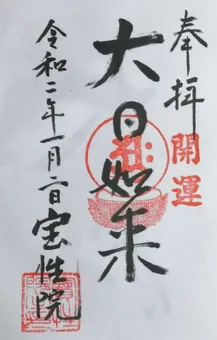 奉拝
開運
大日如来
令和二年一月二日
宝性院